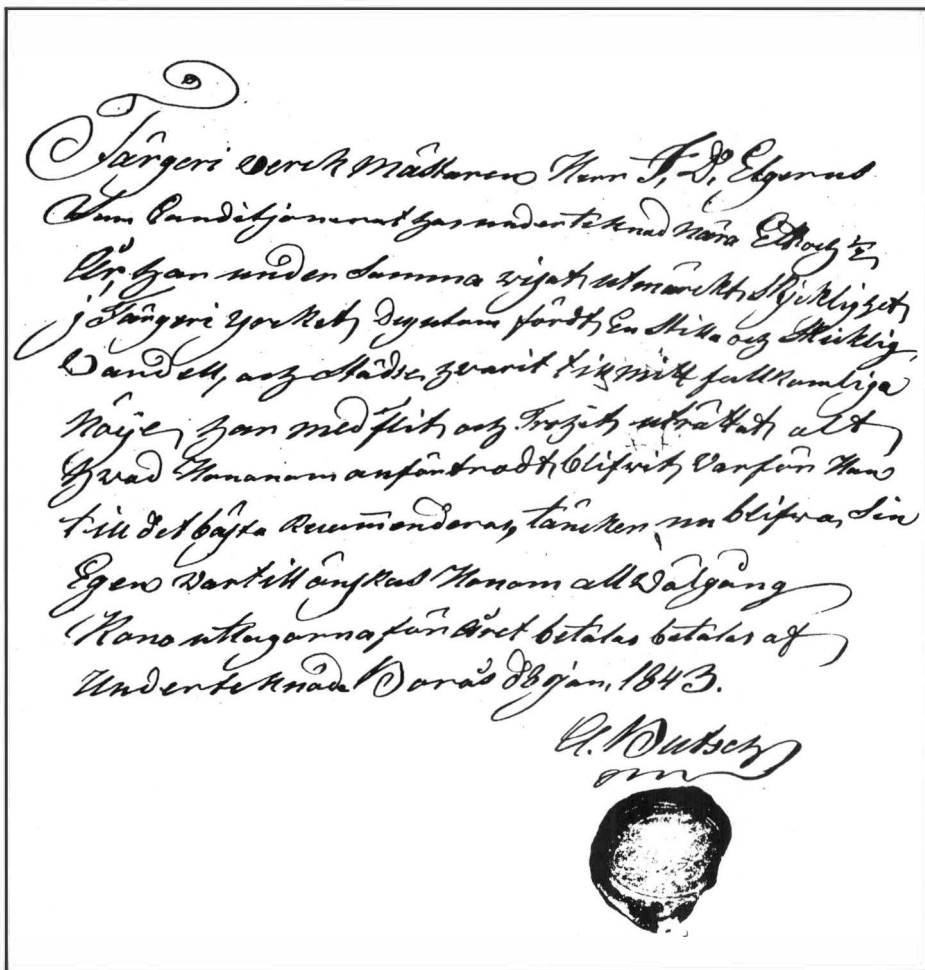 Färgeri verck Mästaren Herr F. D. Elgerus
Som Conditjonerat hos undertecknad nära Ett och ½
År, har under Samma wisat utmärckt Skjcklighet
j Färgeri yrcket, desutom fördt En Stilla och Skicklig
Vandell, och städse, hvarit till mitt fullkomliga
Nöije, han med flit och Trohet uträttat alt
hvad Honanom anförtrodt blifwit, Varför Han
till det bästa Recummenderas, täncker nu blifwa Sin
Egen Vartill önskas Honom all Välgång
Krono utlagorna för året betalas betalas af
Undertecknade Borås d 8 jan. 1843.
Butsch